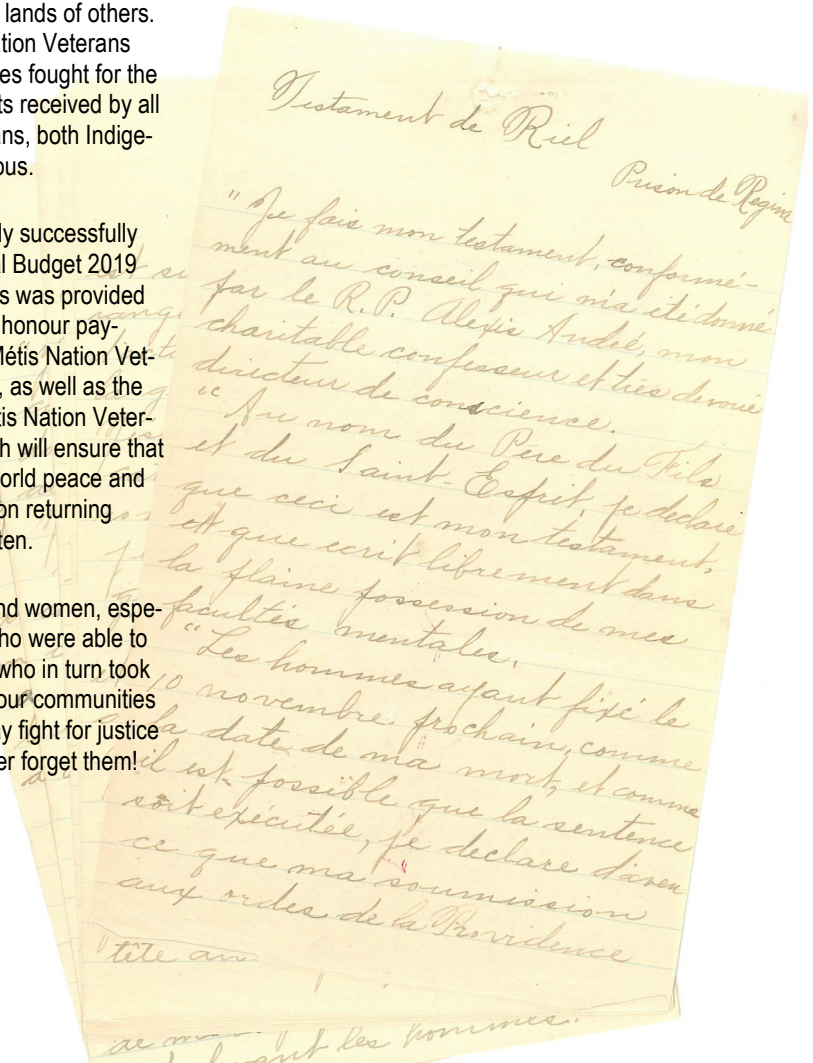 lands of others.
tion Veterans
es fought for the
ts received by all
ans, both Indige-
ous.
ly successfully
al Budget 2019
s was provided
honour pay-
Métis Nation Vet-
, as well as the
tis Nation Veter-
h will ensure that
orld peace and
on returning
ten.
nd women, espe-
ho were able to
who in turn took
our communities
ay fight for justice
er forget them!
Testament de Riel
Prison de Regina
"Je fais mon testament, conformé-
ment au conseil qui m'a été donné
par le R.P. Alexis André, mon
charitable confesseur et très devoué
directeur de conscience.
"Au nom du Père du Fils
et du Saint-Esprit, je declare
que ceci est mon testament,
et que ecrit librement dans
la plaine possession de mes
facultés mentales.
"Les hommes ayant fixé le
10 novembre prochain, comme
la date de ma mort, et comme
il est possible que la sentence
soit exécutée, je declare d'aven
ce que ma soumission
aux ordes de la Providence
tête au
de
les hommes.